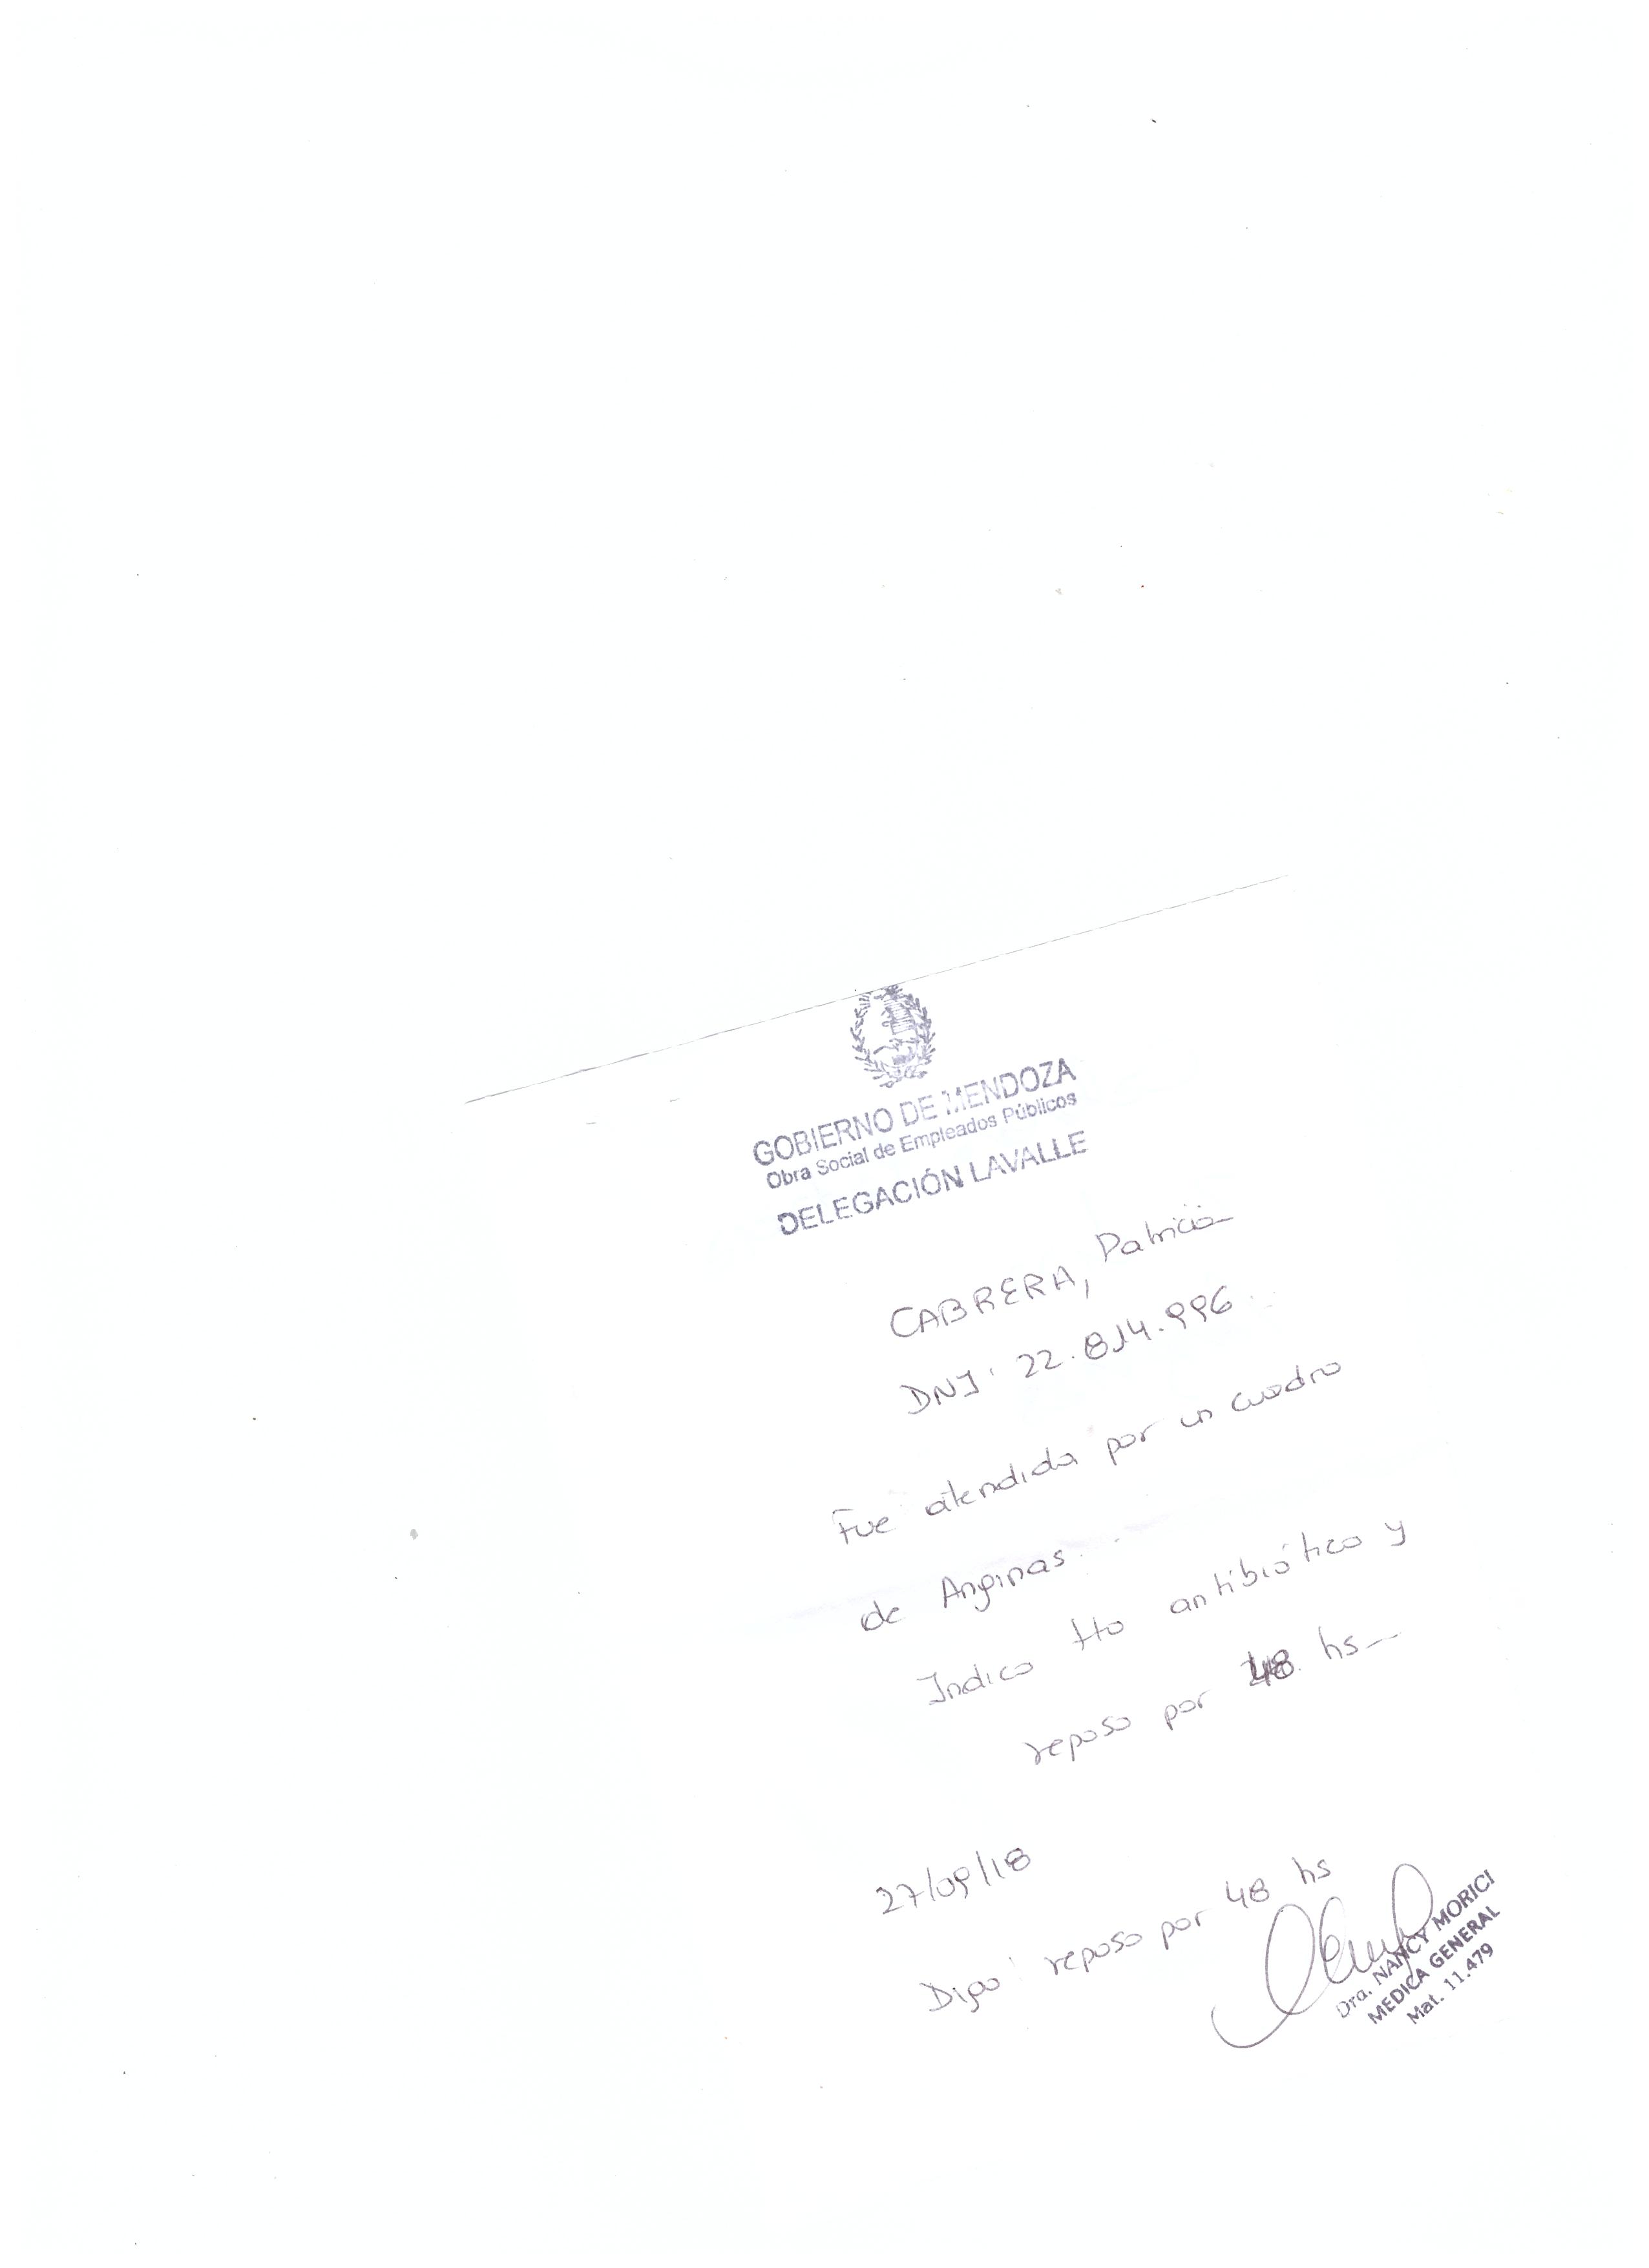 GOBIERNO DE MENDOZA
Obra Social de Empleados Públicos
DELEGACIÓN LAVALLE
CABRERA, Patricia
DNI: 22.814.996
Fue atendida por un cuadro
de Anginas.
Indico tto antibiótico y
reposo por 48 hs
27/09/18
Digo: reposo por 48 hs
Dra. NANCY MORICI
MEDICA GENERAL
Mat. 11.479